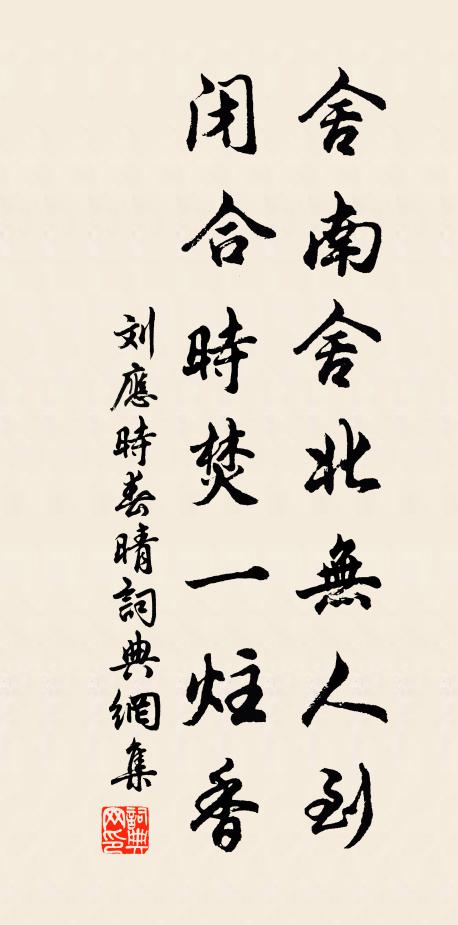 舍南舍北無人到
闭合時焚一炷香
刘應時春晴詞典網集
詞典网印